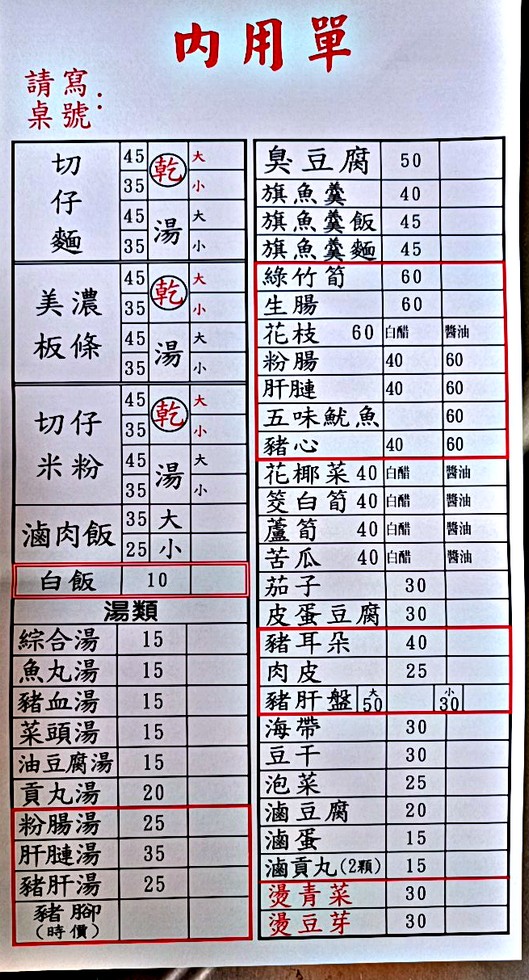 內用單
請寫
桌號：
切仔麵
45 乾 大
35 小
45 湯 大
35 小
美濃板條
45 乾 大
35 小
45 湯 大
35 小
切仔米粉
45 乾 大
35 小
45 湯 大
35 小
滷肉飯
35 大
25 小
白飯 10
湯類
綜合湯 15
魚丸湯 15
豬血湯 15
菜頭湯 15
油豆腐湯 15
貢丸湯 20
粉腸湯 25
肝膁湯 35
豬肝湯 25
豬腳
(時價)
臭豆腐 50
旗魚羹 40
旗魚羹飯 45
旗魚羹麵 45
綠竹筍 60
生腸 60
花枝 60 白醋 醬油
粉腸 40 60
肝膁 40 60
五味魷魚 60
豬心 40 60
花椰菜 40 白醋 醬油
筊白筍 40 白醋 醬油
蘆筍 40 白醋 醬油
苦瓜 40 白醋 醬油
茄子 30
皮蛋豆腐 30
豬耳朵 40
肉皮 25
豬肝盤 大50 小30
海帶 30
豆干 30
泡菜 25
滷豆腐 20
滷蛋 15
滷貢丸(2顆) 15
燙青菜 30
燙豆芽 30